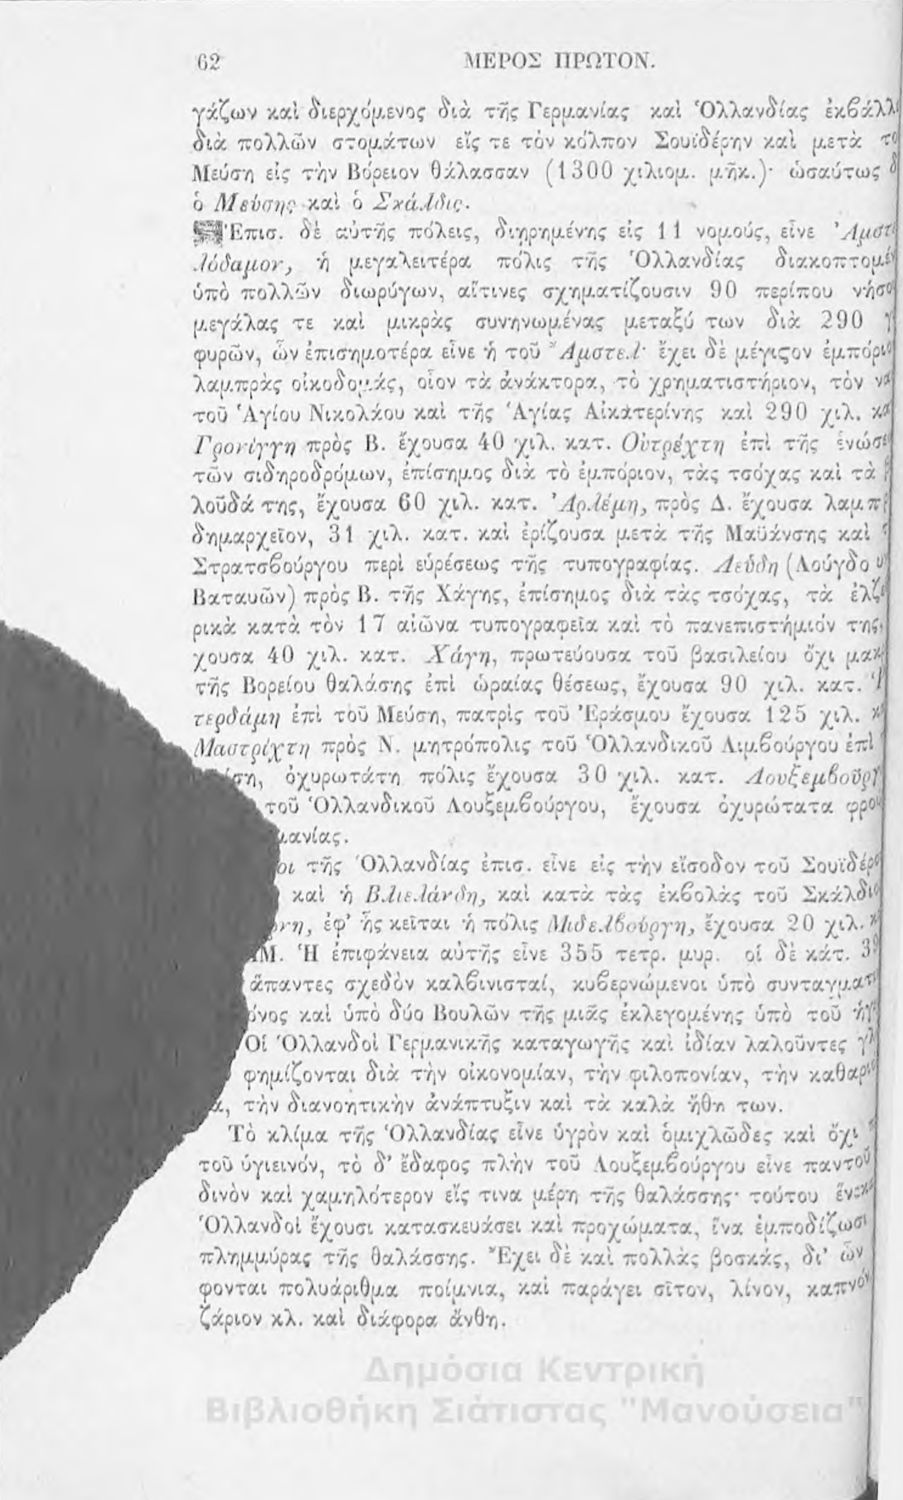 62 ΜΕΡΟΣ ΠΡΩΤΟΝ.
γάζων καὶ διερχόμενος διὰ τῆς Γερμανίας καὶ Ὁλλανδίας
διὰ πολλῶν στομάτων εἴς τε τὸν κόλπον Σουϊδέρην καὶ μετὰ
Μεύση εἰς τὴν Βόρειον θάλασσαν (1300 χιλιομ. μῆκ.)· ὡσαύτως
ὁ Μεύσης καὶ ὁ Σκάλδις.
Ἐπισ. δὲ αὐτῆς πόλεις, διῃρημένης εἰς 11 νομούς, εἶνε
λόδαμον, ἡ μεγαλειτέρα πόλις τῆς Ὁλλανδίας
ὑπὸ πολλῶν διωρύγων, αἵτινες σχηματίζουσιν 90 περίπου
μεγάλας τε καὶ μικρὰς συνηνωμένας μεταξύ των διὰ 290
φυρῶν, ὧν ἐπισημοτέρα εἶνε ἡ τοῦ Ἄμστελ· ἔχει δὲ μέγιςον
λαμπρὰς οἰκοδομάς, οἷον τὰ ἀνάκτορα, τὸ χρηματιστήριον, τὸν
τοῦ Ἁγίου Νικολάου καὶ τῆς Ἁγίας Αἰκατερίνης καὶ 290 χιλ.
Γρονίγγη πρὸς Β. ἔχουσα 40 χιλ. κατ. Οὐτρέχτη ἐπὶ τῆς
τῶν σιδηροδρόμων, ἐπίσημος διὰ τὸ ἐμπόριον, τὰς τσόχας καὶ τὰ
λοῦδά της, ἔχουσα 60 χιλ. κατ. Ἀρλέμη, πρὸς Δ. ἔχουσα
δημαρχεῖον, 31 χιλ. κατ. καὶ ἐρίζουσα μετὰ τῆς Μαϋάνσης καὶ
Στρατσβούργου περὶ εὑρέσεως τῆς τυπογραφίας. Λεΰδη
Βαταυῶν) πρὸς Β. τῆς Χάγης, ἐπίσημος διὰ τὰς τσόχας, τὰ
ρικὰ κατὰ τὸν 17 αἰῶνα τυπογραφεῖα καὶ τὸ πανεπιστήμιόν της,
χουσα 40 χιλ. κατ. Χάγη, πρωτεύουσα τοῦ βασιλείου ὄχι
τῆς Βορείου θαλάσης ἐπὶ ὡραίας θέσεως, ἔχουσα 90 χιλ. κατ.
τερδάμη ἐπὶ τοῦ Μεύση, πατρὶς τοῦ Ἐράσμου ἔχουσα 125 χιλ.
Μαστρίχτη πρὸς Ν. μητρόπολις τοῦ Ὁλλανδικοῦ Λιμβούργου ἐπὶ
ὀχυρωτάτη πόλις ἔχουσα 30 χιλ. κατ.
τοῦ Ὁλλανδικοῦ Λουξεμβούργου, ἔχουσα ὀχυρώτατα
μανίας.
τῆς Ὁλλανδίας ἐπισ. εἶνε εἰς τὴν εἴσοδον τοῦ
καὶ ἡ Βλιελάνδη, καὶ κατὰ τὰς ἐκβολὰς τοῦ
ἐφ' ἧς κεῖται ἡ πόλις Μιδελβούργη, ἔχουσα 20 χιλ.
Ἡ ἐπιφάνεια αὐτῆς εἶνε 355 τετρ. μυρ. οἱ δὲ κάτ.
ἅπαντες σχεδὸν καλβινισταί, κυβερνώμενοι ὑπὸ
καὶ ὑπὸ δύο Βουλῶν τῆς μιᾶς ἐκλεγομένης ὑπὸ τοῦ
Οἱ Ὁλλανδοὶ Γερμανικῆς καταγωγῆς καὶ ἰδίαν λαλοῦντες
φημίζονται διὰ τὴν οἰκονομίαν, τὴν φιλοπονίαν, τὴν
τὴν διανοητικὴν ἀνάπτυξιν καὶ τὰ καλὰ ἤθη των.
Τὸ κλίμα τῆς Ὁλλανδίας εἶνε ὑγρὸν καὶ ὁμιχλῶδες καὶ ὄχι
τοῦ ὑγιεινόν, τὸ δ' ἔδαφος πλὴν τοῦ Λουξεμβούργου εἶνε
δινὸν καὶ χαμηλότερον εἴς τινα μέρη τῆς θαλάσσης· τούτου
Ὁλλανδοὶ ἔχουσι κατασκευάσει καὶ προχώματα, ἵνα ἐμποδίζωσι
πλημμύρας τῆς θαλάσσης. Ἔχει δὲ καὶ πολλὰς βοσκάς, δι' ὧν
φονται πολυάριθμα ποίμνια, καὶ παράγει σῖτον, λίνον,
ζάριον κλ. καὶ διάφορα ἄνθη.
Δημόσια Κεντρική
Βιβλιοθήκη Σιάτιστας "Μανούσεια"